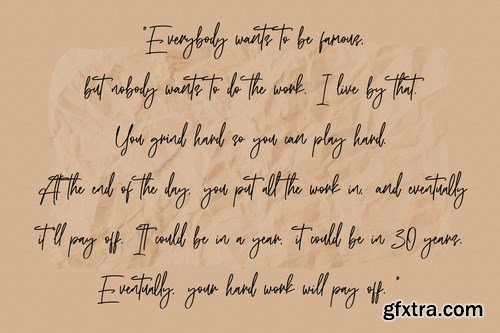 "Everybody wants to be famous,
but nobody wants to do the work. I live by that.
You grind hard so you can play hard.
At the end of the day, you put all the work in, and eventually
it'll pay off. It could be in a year, it could be in 30 years.
Eventually, your hard work will pay off. "
gfxtra.com